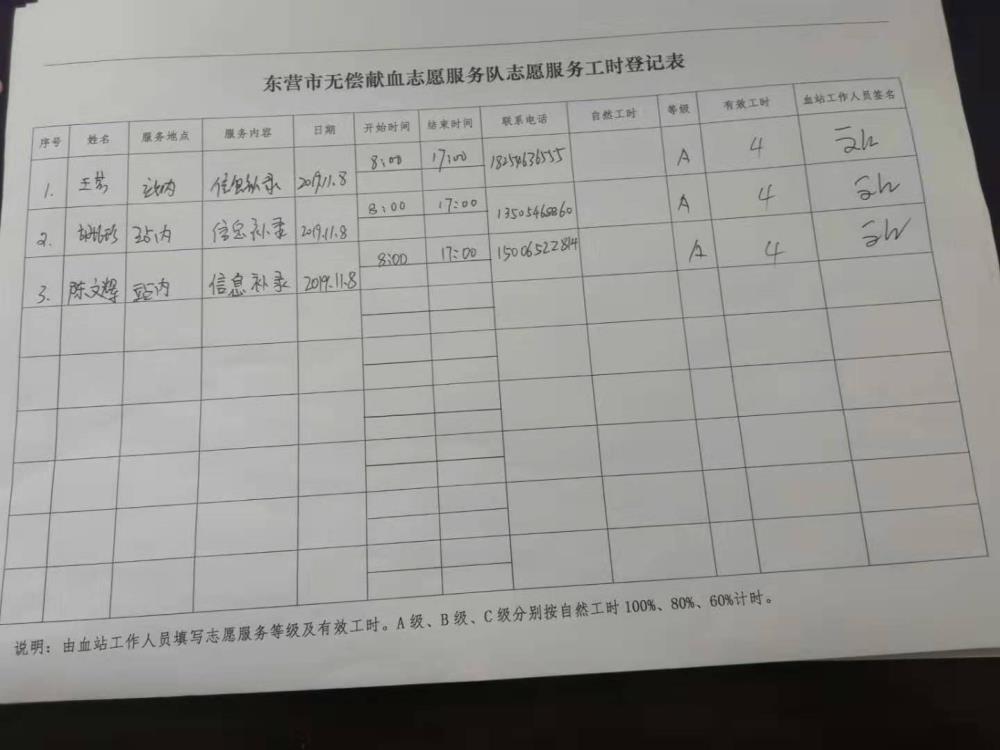 东营市无偿献血志愿服务队志愿服务工时登记表
序号 姓名 服务地点 服务内容 日期 开始时间 结束时间 联系电话 自然工时 等级 有效工时 血站工作人员签名
1. 站内 信息补录 2019.11.8 8:00 17:00 18254636555 A 4
2. 站内 信息补录 2019.11.8 8:00 17:00 13505465860 A 4
3. 陈文辉 站内 信息补录 2019.11.8 8:00 17:00 15006522814 A 4
说明：由血站工作人员填写志愿服务等级及有效工时。A级、B级、C级分别按自然工时100%、80%、60%计时。